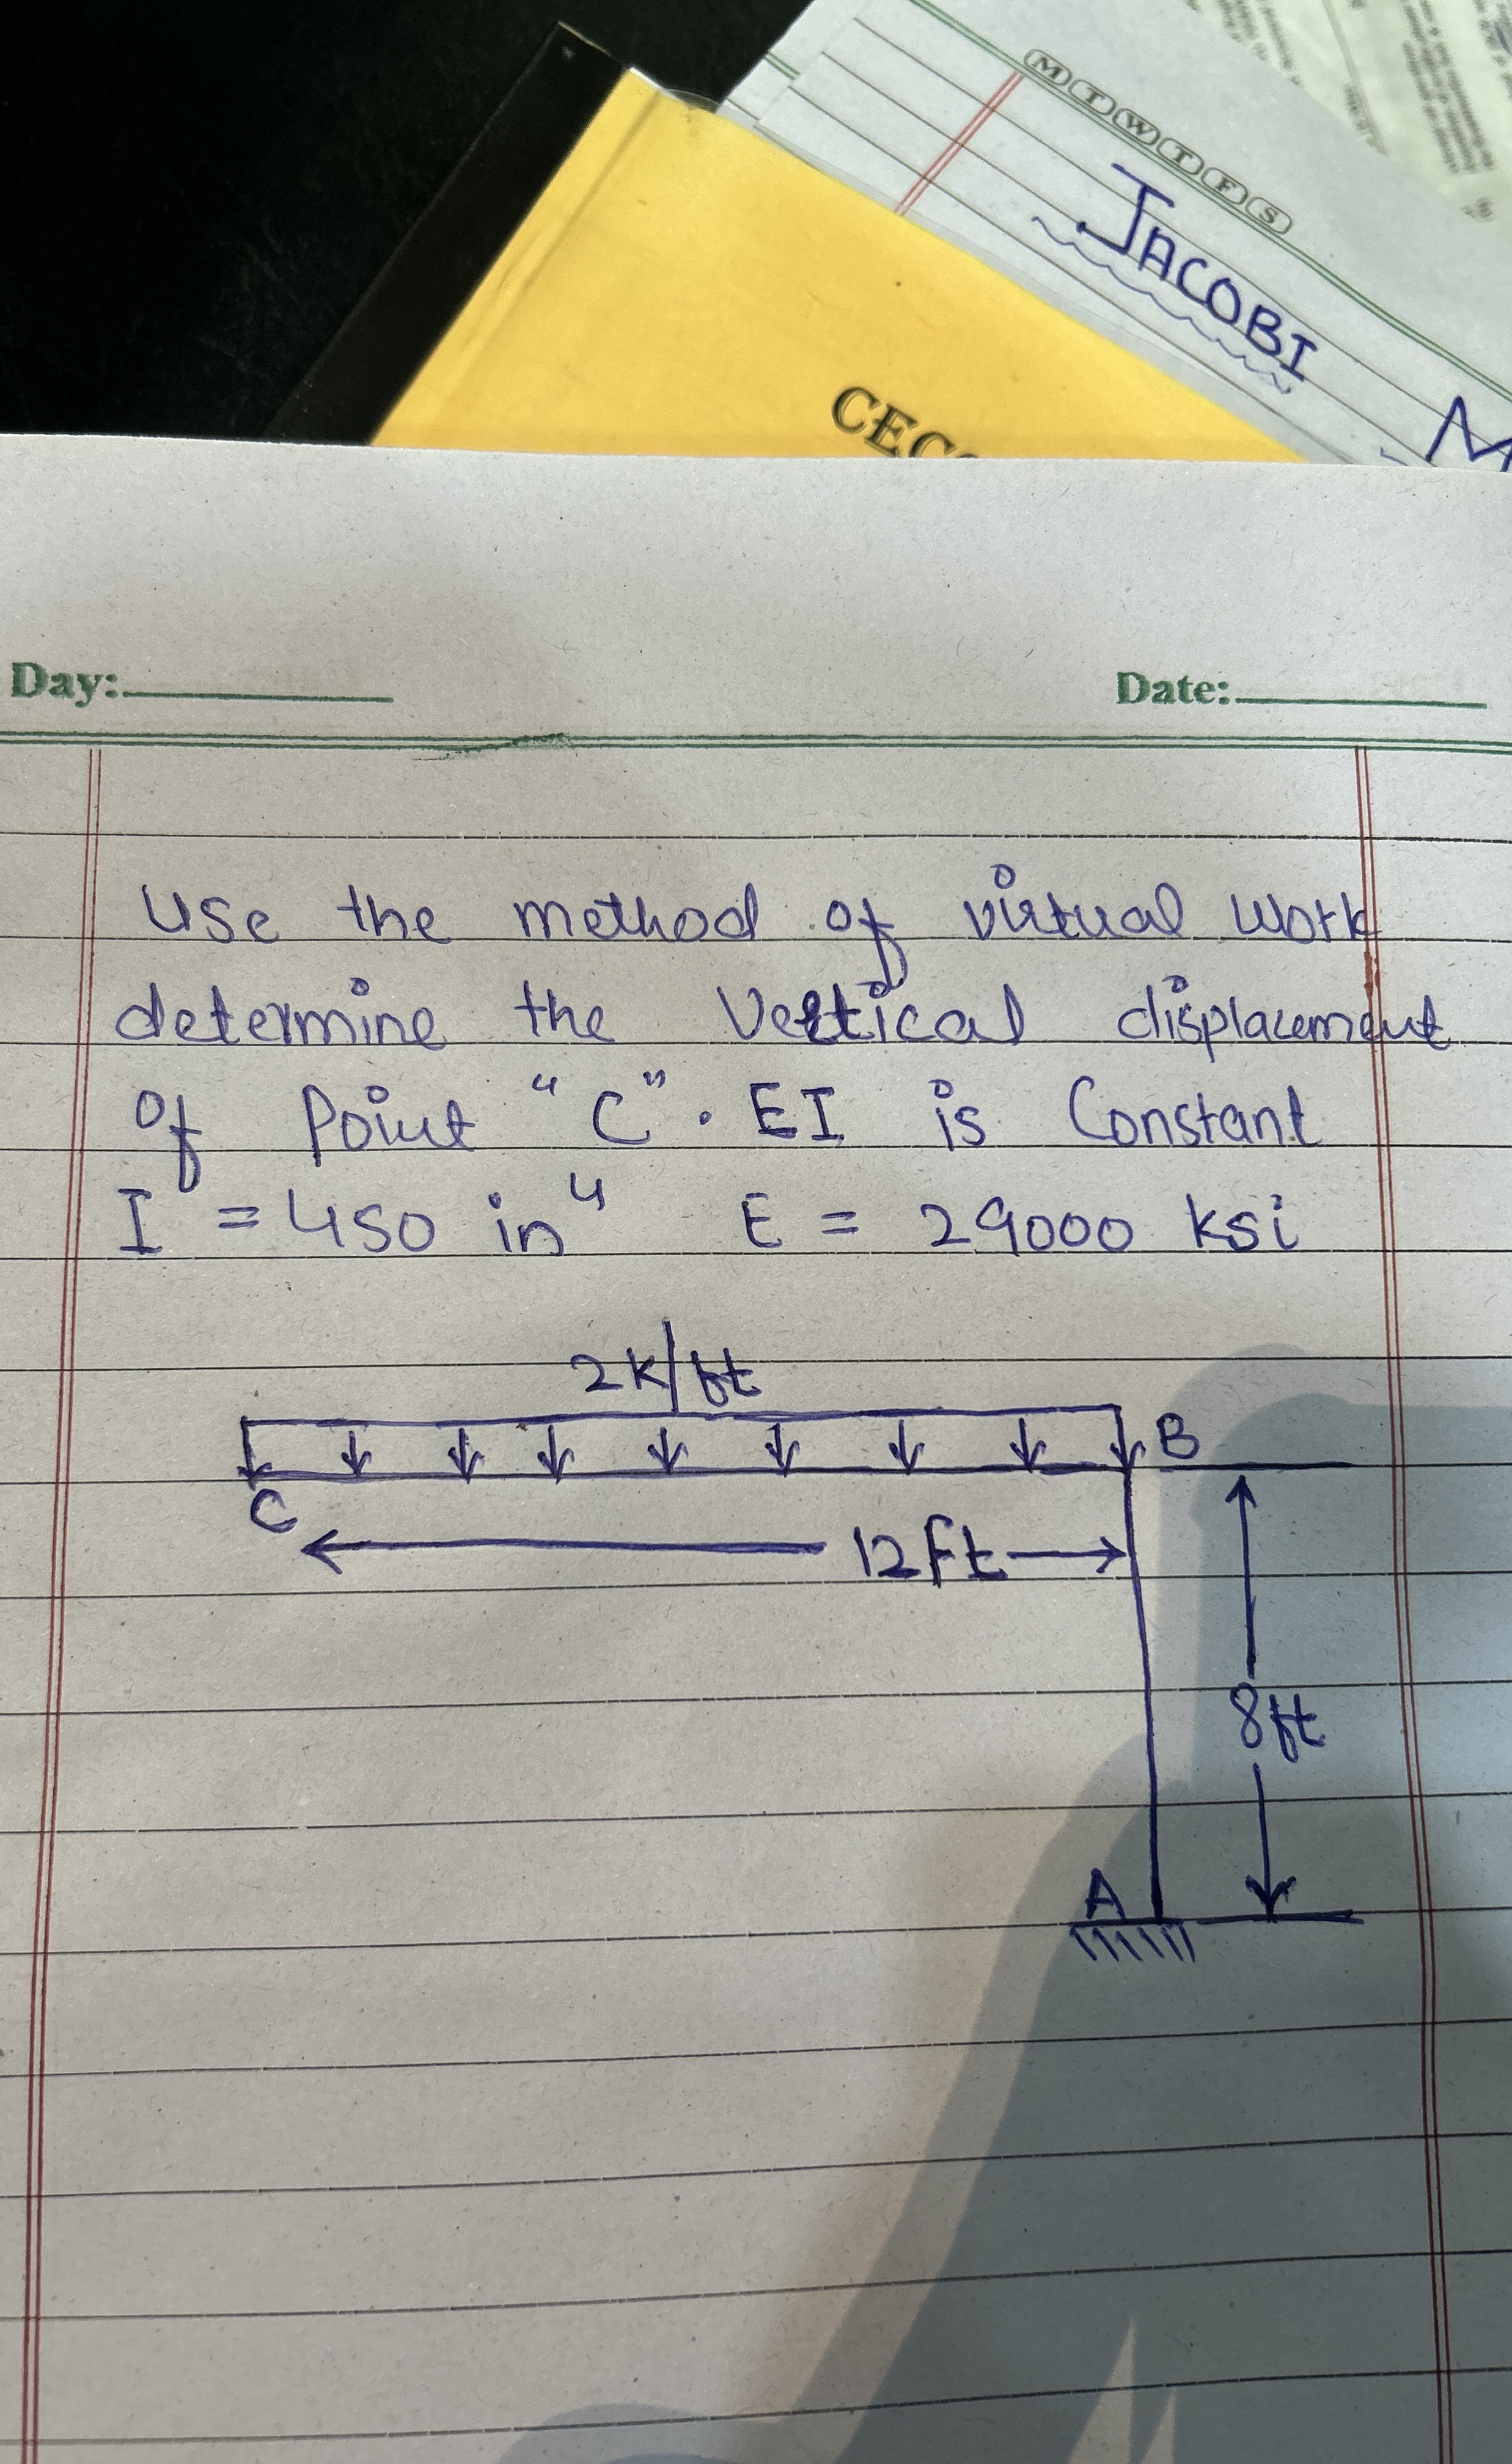 M T W T F S
JACOBI
M
Day:
Date:
Use the method of virtual work
determine the Vertical displacement
of Point "C". EI is Constant
I = 450 in⁴ E = 29000 ksi
2k/ft
B
C
12ft
8ft
A